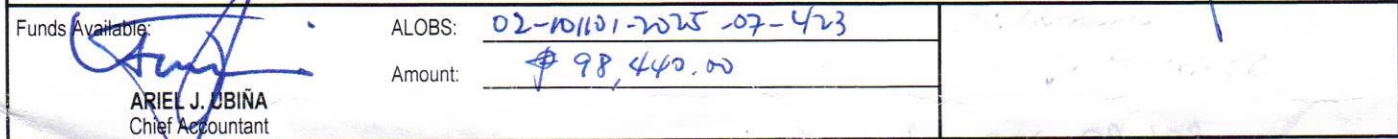 Funds Available:
ALOBS: 02-101101-2025-07-423
Amount: ₱ 98,440.00
ARIEL J. UBIÑA
Chief Accountant